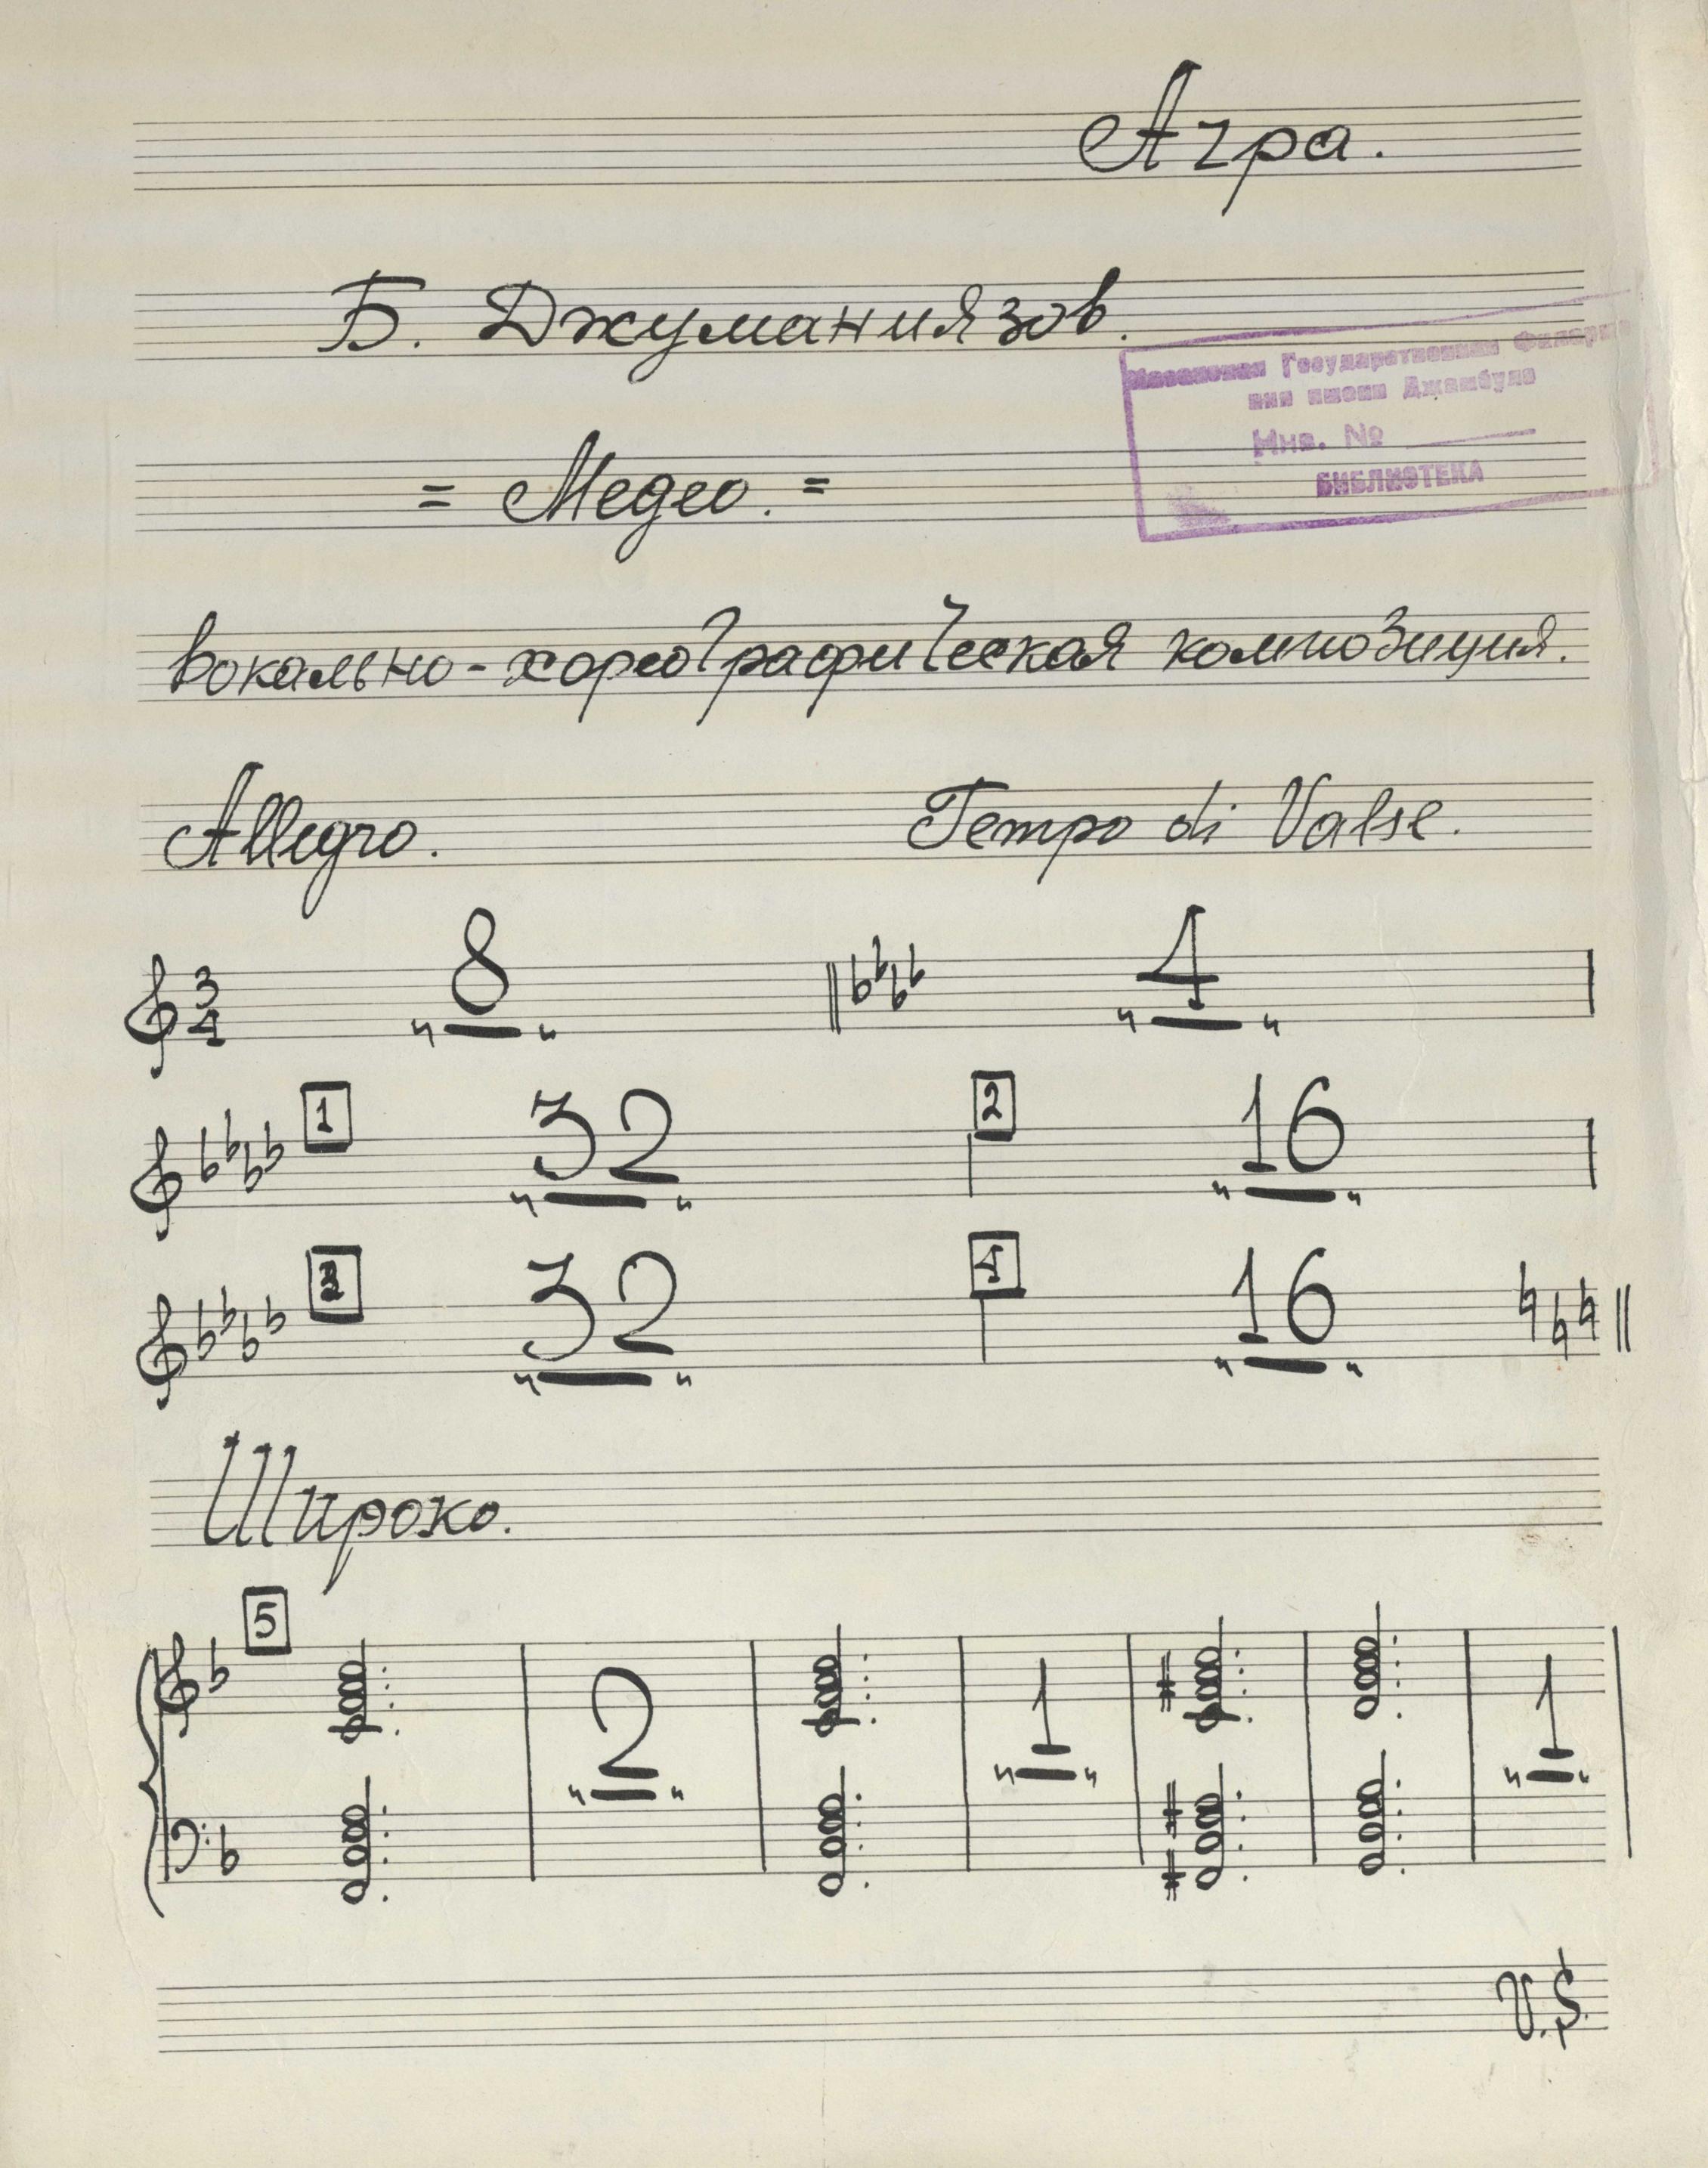 Агра.
Б. Джуманиязов.
Государственная Филармо
ния имени Джамбула
Инв. №
БИБЛИОТЕКА
= Медео. =
вокально-хореографическая композиция.
Allegro. Tempo di Valse.
3 4 8 4
1 32 2 16
3 32 4 16
Широко.
5
2 1 1
V.S.